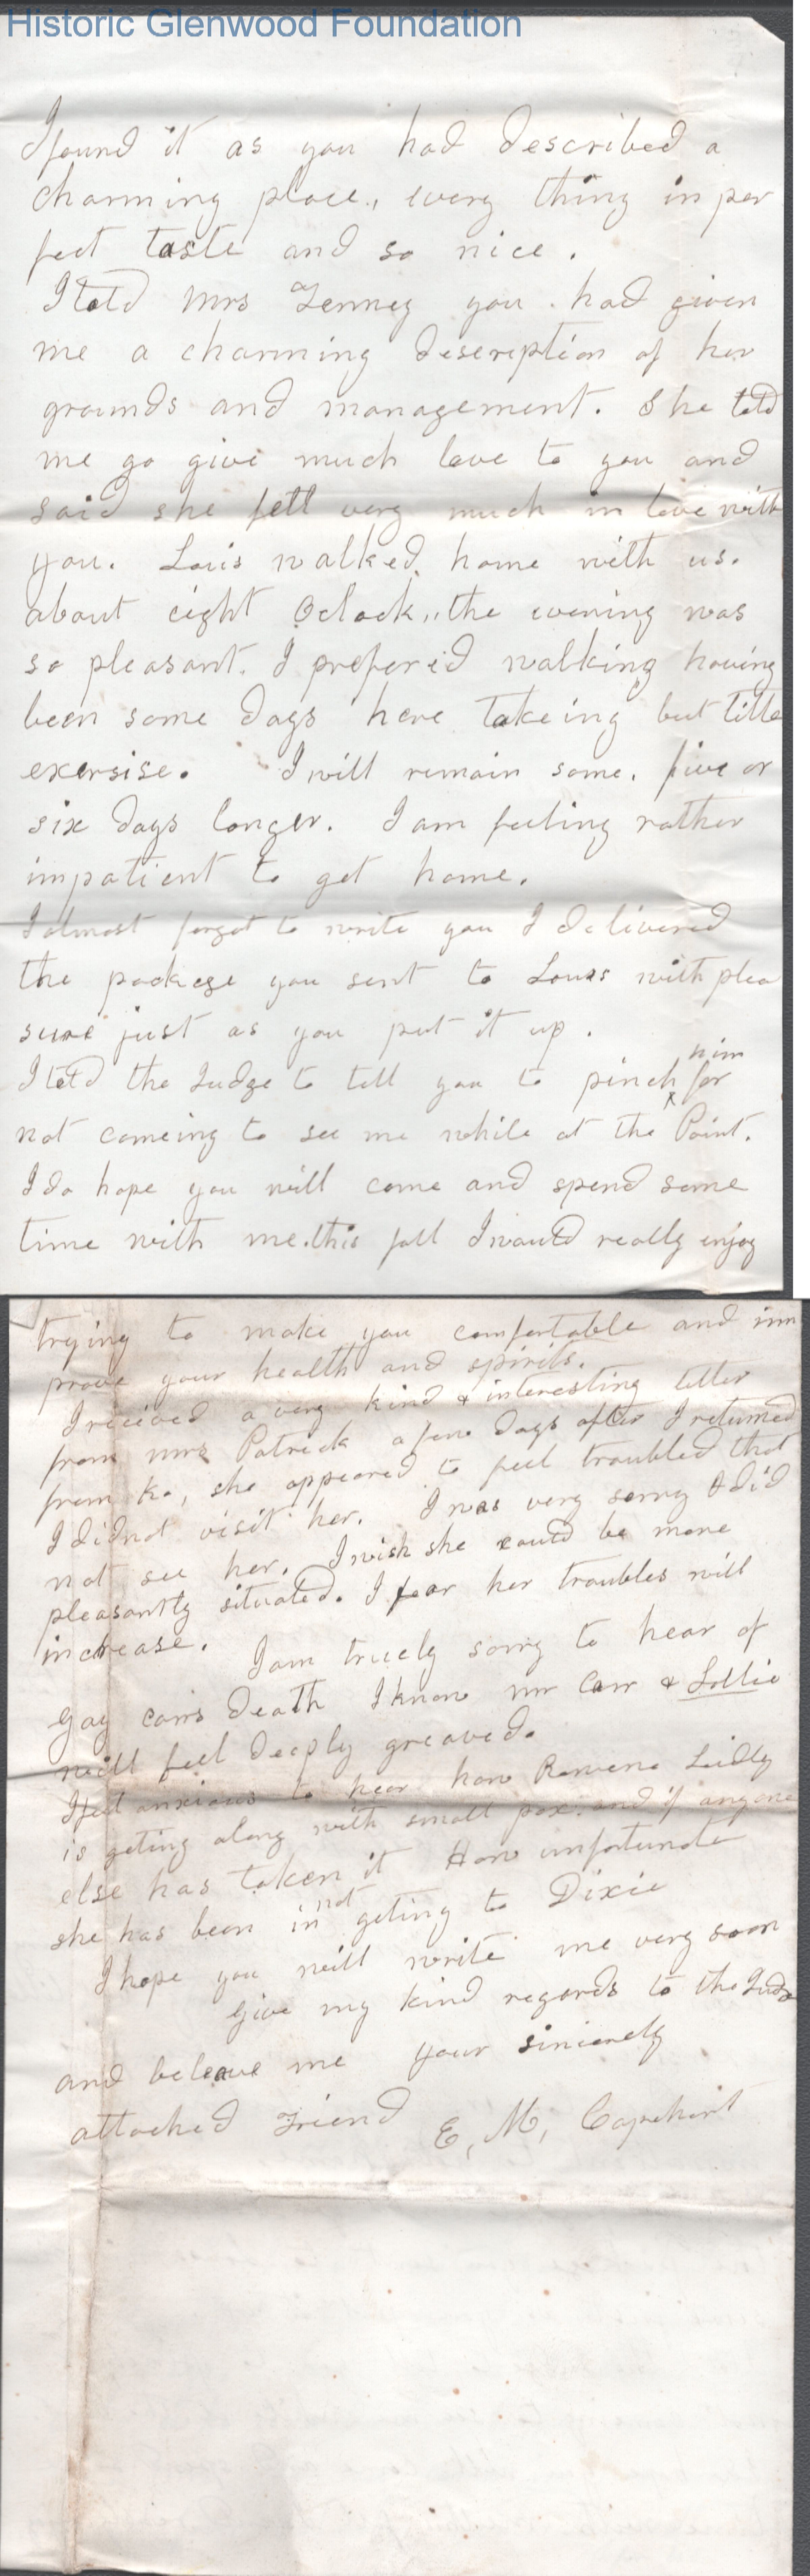 Historic Glenwood Foundation
I found it as you had described a
charming place., every thing in per
fect taste and so nice.
I told Mrs you had given
me a charming desereption of her
grounds and management. She told
me go give much love to you and
said she fell very much in love with
you. Louis walked home with us.
about eight Oclock,, the evening was
so pleasant. I prefered walking having
been some days here takeing but little
exersise. I will remain some. five or
six days longer. I am feeling rather
impatient to get home.
I almost forgot to write you I delivered
the package you sent to Louis with plea
sure just as you put it up.
him
I told the Judge to tell you to pinch for
not comeing to see me while at the Point.
I do hope you will come and spend some
time with me. this fall I would really enjoy
trying to make you comfortable and im
prove your health and spirits.
I recieved a very kind & interesting letter
from Mrs Patrick a few days after I returned
from Ko, she appeared to feel troubled that
I did not visit her. I was very sorry I did
not see her. I wish she could be more
pleasantly situated. I fear her troubles will
increase. I am truely sorry to hear of
Gay Carrs death I know Mr Carr & Lollie
will feel deeply greaved.
I feel anxious to hear how Rowena
is geting along with small pox. and if anyone
else has taken it How unfortunate
not
she has been in geting to Dixie
I hope you will write me very soon
Give my kind regards to the Judge
and beleave me your sincerely
attached Friend E, M, Capehart